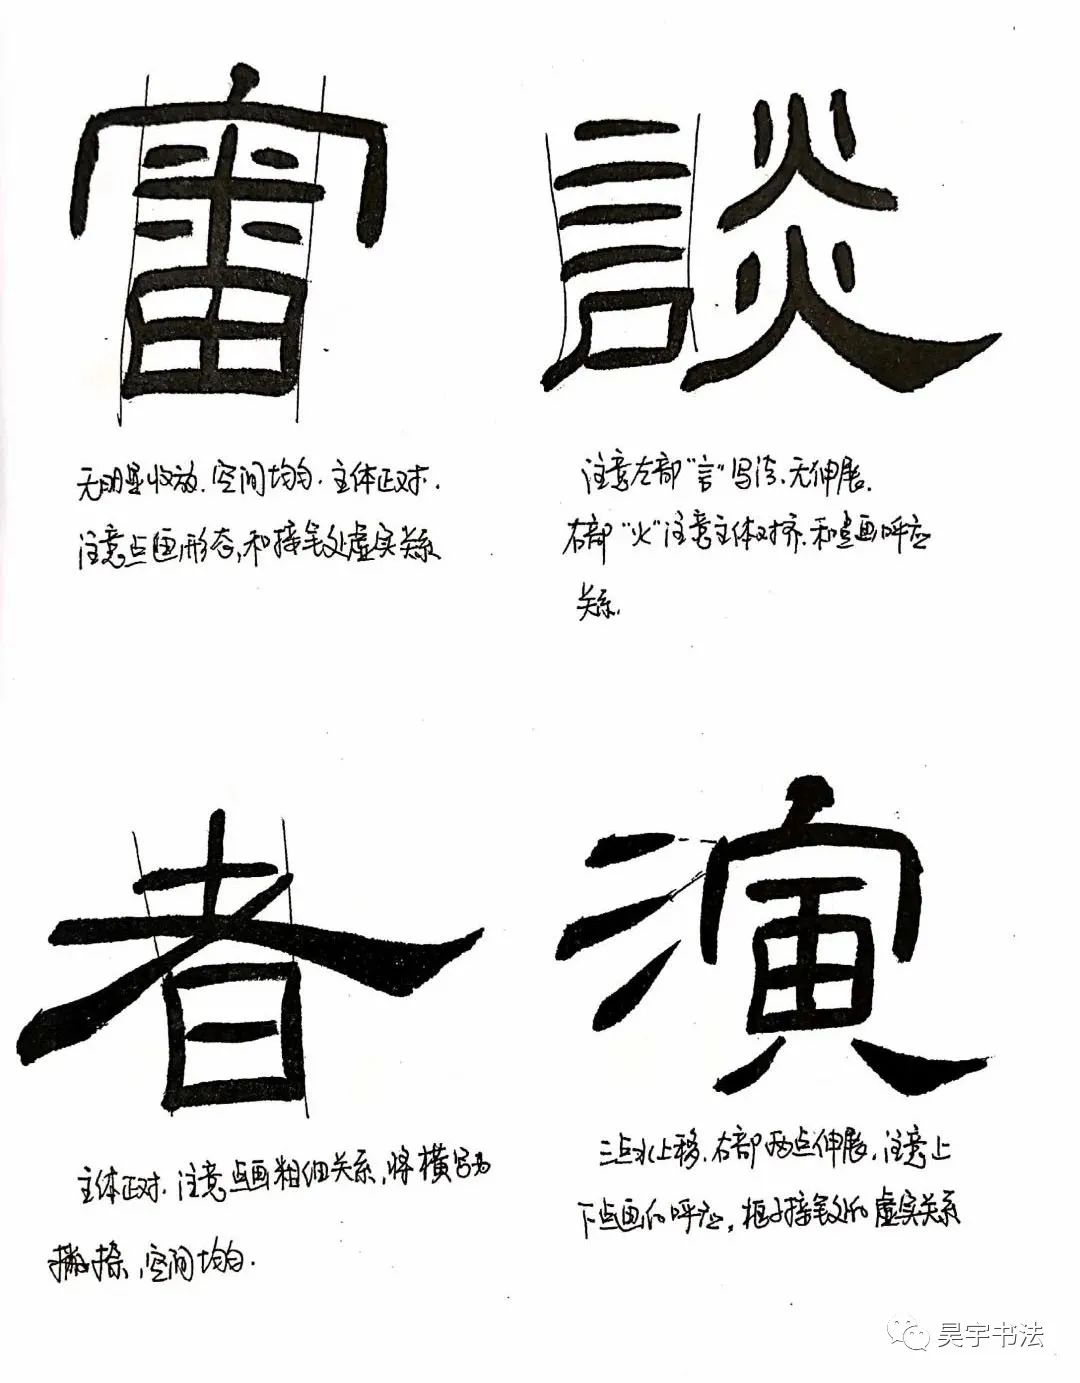 審
談
无明显收放.空间均匀.主体正对.
注意点画形态,和接笔处虚实关系
注意左部"言"写法.无伸展.
右部"火"注意主体对齐.和点画呼应
关系.
者
演
主体正对.注意点画粗细关系,将横写为
撇捺,空间均匀.
三点水上移.右部两点伸展,注意上
下点画的呼应,框子接笔处的虚实关系
昊宇书法